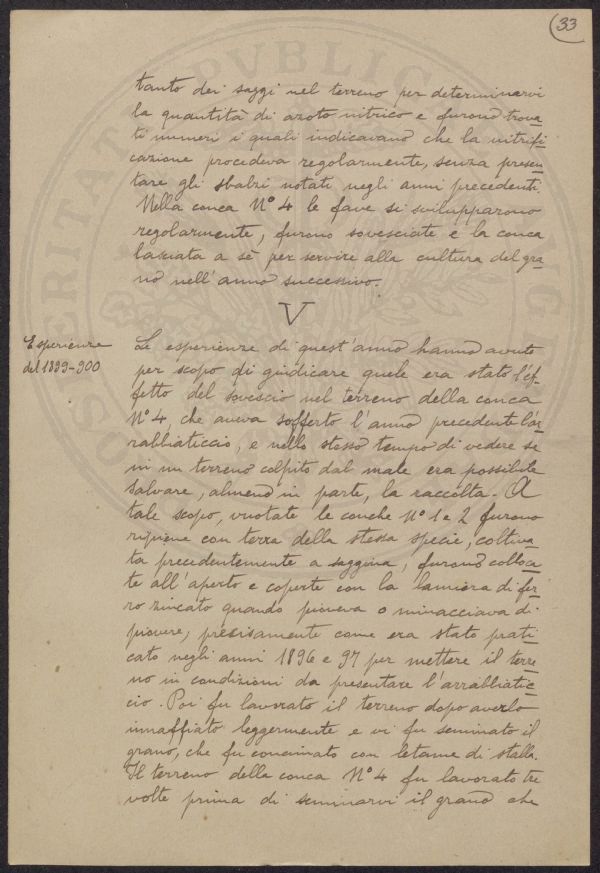 33
tanto dei saggi nel terreno per determinarvi
la quantità di azoto nitrico e furono trova-
ti numeri i quali indicavano che la nitrifi-
cazione procedeva regolarmente, senza presen-
tare gli sbalzi notati negli anni precedenti.
Nella conca Nº 4 le fave si svilupparono
regolarmente, furono sovesciate e la conca
lasciata a sè per servire alla cultura del gra-
no nell'anno successivo.
V
Esperienze
del 1899-900
Le esperienze di quest'anno hanno avuto
per scopo di giudicare quale era stato l'ef-
fetto del sovescio nel terreno della conca
Nº 4, che aveva sofferto l'anno precedente l'ar-
rabbiaticcio, e nello stesso tempo di vedere se
in un terreno colpito dal male era possibile
salvare, almeno in parte, la raccolta. A
tale scopo, vuotate le conche Nº 1 e 2 furono
ripiene con terra della stessa specie, coltiva-
ta precedentemente a saggina, furono colloca-
te all'aperto e coperte con la lamiera di fer-
ro zincato quando pioveva o minacciava di
piovere, precisamente come era stato prati-
cato negli anni 1896 e 97 per mettere il terre-
no in condizioni da presentare l'arrabbiatic-
cio. Poi fu lavorato il terreno dopo averlo
innaffiato leggermente e vi fu seminato il
grano, che fu concimato con letame di stalla.
Il terreno della conca Nº 4 fu lavorato tre
volte prima di seminarvi il grano che